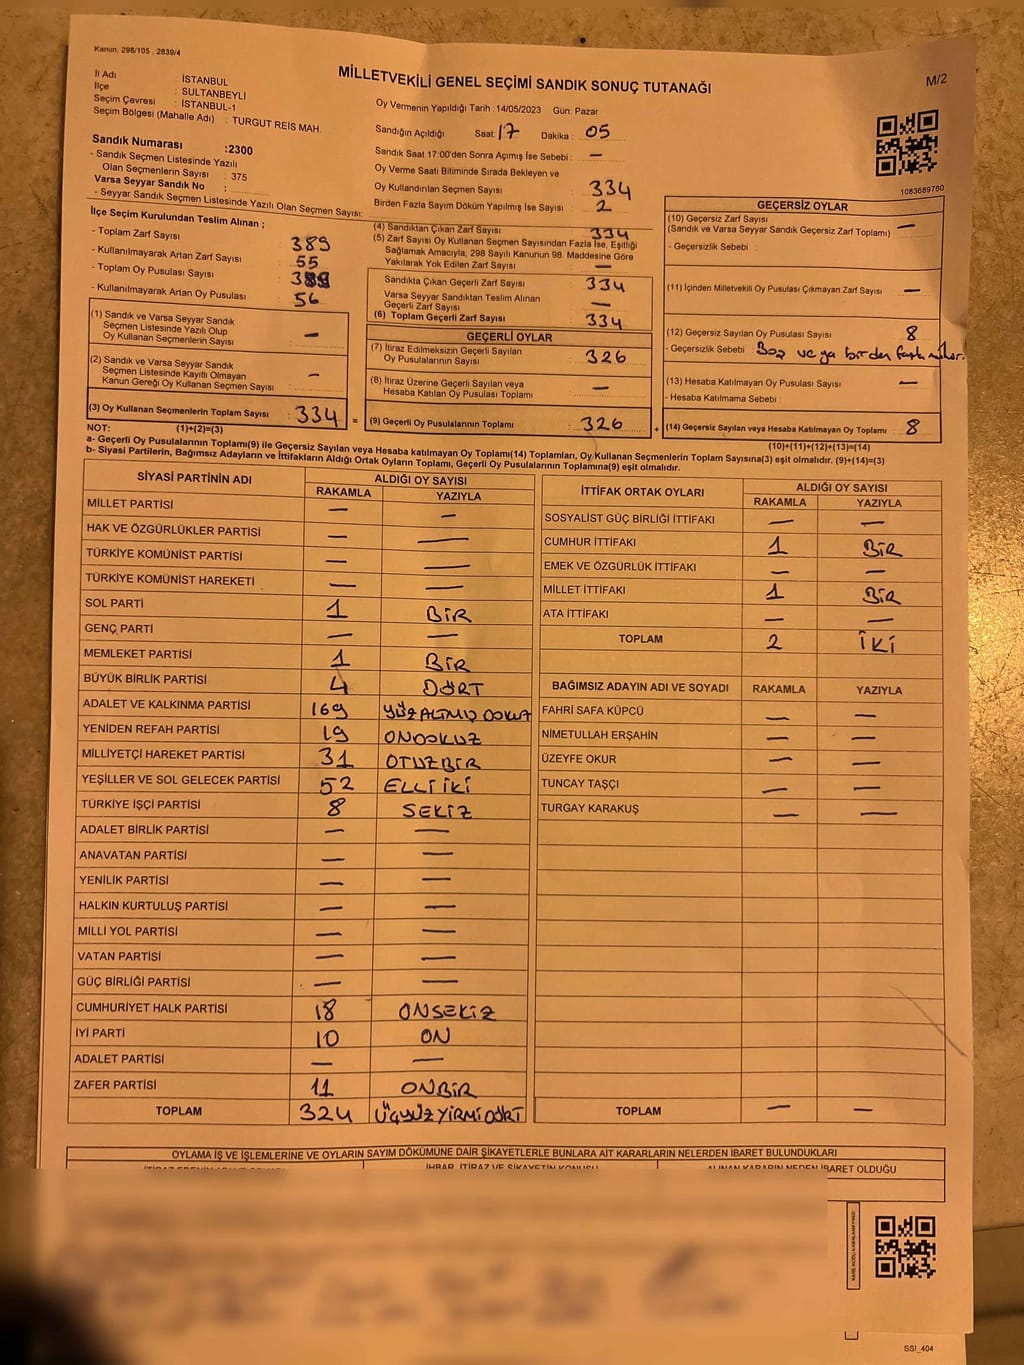 Kanun, 298/105 , 2839/4
MİLLETVEKİLİ GENEL SEÇİMİ SANDIK SONUÇ TUTANAĞI
M/2
İl Adı : İSTANBUL
İlçe : SULTANBEYLİ
Seçim Çevresi : İSTANBUL-1
Seçim Bölgesi (Mahalle Adı) : TURGUT REİS MAH.
Sandık Numarası :2300
- Sandık Seçmen Listesinde Yazılı
Olan Seçmenlerin Sayısı : 375
Varsa Seyyar Sandık No :
- Seyyar Sandık Seçmen Listesinde Yazılı Olan Seçmen Sayısı:
Oy Vermenin Yapıldığı Tarih :14/05/2023 Gün: Pazar
Sandığın Açıldığı Saat: 17 Dakika : 05
Sandık Saat 17:00'den Sonra Açılmış İse Sebebi : —
Oy Verme Saati Bitiminde Sırada Bekleyen ve
Oy Kullandırılan Seçmen Sayısı : 334
Birden Fazla Sayım Döküm Yapılmış İse Sayısı : 2
1083689760
İlçe Seçim Kurulundan Teslim Alınan ;
- Toplam Zarf Sayısı : 389
- Kullanılmayarak Artan Zarf Sayısı : 55
- Toplam Oy Pusulası Sayısı : 389
- Kullanılmayarak Artan Oy Pusulası : 56
(1) Sandık ve Varsa Seyyar Sandık
Seçmen Listesinde Yazılı Olup
Oy Kullanan Seçmenlerin Sayısı : —
(2) Sandık ve Varsa Seyyar Sandık
Seçmen Listesinde Kayıtlı Olmayan
Kanun Gereği Oy Kullanan Seçmen Sayısı : —
(3) Oy Kullanan Seçmenlerin Toplam Sayısı : 334 =
(4) Sandıktan Çıkan Zarf Sayısı : 334
(5) Zarf Sayısı Oy Kullanan Seçmen Sayısından Fazla İse, Eşitliği
Sağlamak Amacıyla, 298 Sayılı Kanunun 98. Maddesine Göre
Yakılarak Yok Edilen Zarf Sayısı : —
Sandıkta Çıkan Geçerli Zarf Sayısı : 334
Varsa Seyyar Sandıktan Teslim Alınan
Geçerli Zarf Sayısı : —
(6) Toplam Geçerli Zarf Sayısı : 334
GEÇERLİ OYLAR
(7) İtiraz Edilmeksizin Geçerli Sayılan
Oy Pusulalarının Sayısı : 326
(8) İtiraz Üzerine Geçerli Sayılan veya
Hesaba Katılan Oy Pusulası Toplamı : —
(9) Geçerli Oy Pusulalarının Toplamı : 326 +
GEÇERSİZ OYLAR
(10) Geçersiz Zarf Sayısı
(Sandık ve Varsa Seyyar Sandık Geçersiz Zarf Toplamı) : —
- Geçersizlik Sebebi :
(11) İçinden Milletvekili Oy Pusulası Çıkmayan Zarf Sayısı : —
(12) Geçersiz Sayılan Oy Pusulası Sayısı : 8
- Geçersizlik Sebebi : Boş veya birden fazla mühür.
(13) Hesaba Katılmayan Oy Pusulası Sayısı : —
- Hesaba Katılmama Sebebi :
(14) Geçersiz Sayılan veya Hesaba Katılmayan Oy Toplamı : 8
NOT: (1)+(2)=(3)
(10)+(11)+(12)+(13)=(14)
a- Geçerli Oy Pusulalarının Toplamı(9) ile Geçersiz Sayılan veya Hesaba katılmayan Oy Toplamı(14) Toplamları, Oy Kullanan Seçmenlerin Toplam Sayısına(3) eşit olmalıdır. (9)+(14)=(3)
b- Siyasi Partilerin, Bağımsız Adayların ve İttifakların Aldığı Ortak Oyların Toplamı, Geçerli Oy Pusulalarının Toplamına(9) eşit olmalıdır.
SİYASİ PARTİNİN ADI
ALDIĞI OY SAYISI
RAKAMLA YAZIYLA
MİLLET PARTİSİ — —
HAK VE ÖZGÜRLÜKLER PARTİSİ — —
TÜRKİYE KOMÜNİST PARTİSİ — —
TÜRKİYE KOMÜNİST HAREKETİ — —
SOL PARTİ 1 BİR
GENÇ PARTİ — —
MEMLEKET PARTİSİ 1 BİR
BÜYÜK BİRLİK PARTİSİ 4 DÖRT
ADALET VE KALKINMA PARTİSİ 169 YÜZALTMIŞ DOKUZ
YENİDEN REFAH PARTİSİ 19 ONDOKUZ
MİLLİYETÇİ HAREKET PARTİSİ 31 OTUZBİR
YEŞİLLER VE SOL GELECEK PARTİSİ 52 ELLİ İKİ
TÜRKİYE İŞÇİ PARTİSİ 8 SEKİZ
ADALET BİRLİK PARTİSİ — —
ANAVATAN PARTİSİ — —
YENİLİK PARTİSİ — —
HALKIN KURTULUŞ PARTİSİ — —
MİLLİ YOL PARTİSİ — —
VATAN PARTİSİ — —
GÜÇ BİRLİĞİ PARTİSİ — —
CUMHURİYET HALK PARTİSİ 18 ONSEKİZ
İYİ PARTİ 10 ON
ADALET PARTİSİ — —
ZAFER PARTİSİ 11 ONBİR
TOPLAM 324 ÜÇYÜZYİRMİDÖRT
İTTİFAK ORTAK OYLARI
ALDIĞI OY SAYISI
RAKAMLA YAZIYLA
SOSYALİST GÜÇ BİRLİĞİ İTTİFAKI — —
CUMHUR İTTİFAKI 1 BİR
EMEK VE ÖZGÜRLÜK İTTİFAKI — —
MİLLET İTTİFAKI 1 BİR
ATA İTTİFAKI — —
TOPLAM 2 İKİ
BAĞIMSIZ ADAYIN ADI VE SOYADI RAKAMLA YAZIYLA
FAHRİ SAFA KÜPCÜ — —
NİMETULLAH ERŞAHİN — —
ÜZEYFE OKUR — —
TUNCAY TAŞÇI — —
TURGAY KARAKUŞ — —
TOPLAM — —
OYLAMA İŞ VE İŞLEMLERİNE VE OYLARIN SAYIM DÖKÜMÜNE DAİR ŞİKAYETLERLE BUNLARA AİT KARARLARIN NELERDEN İBARET BULUNDUKLARI
İHBAR, İTİRAZ VE ŞİKAYETİN KONUSU ALINAN KARARIN NEDEN İBARET OLDUĞU
SSI_404